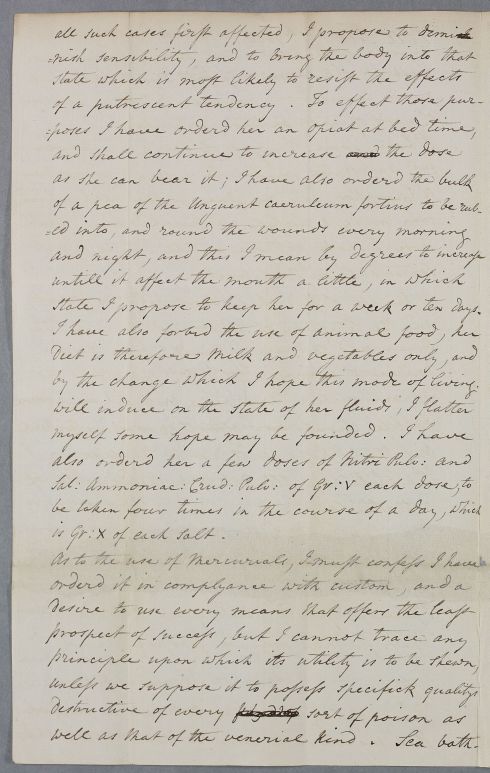 all such cases first affected, I propose to dimi
=nish sensibility, and to bring the body into that
state which is most likely to resist the effects
of a putrescent tendency. To effect those pur-
=poses I have orderd her an opiat at bed time,
and shall continue to increase the dose
as she can bear it; I have also orderd the bulk
of a pea of the Unguent caeruleum fortius to be rub-
=ed into, and round the wounds every morning
and night, and this I mean by degrees to increase
untill it affect the mouth a little, in which
State I propose to keep her for a week or ten days.
I have also forbid the use of animal food, her
Diet is therefore Milk and vegetables only, and
by the change which I hope this mode of living
will induce on the state of her fluids, I flatter
myself some hope may be founded. I have
also orderd her a few doses of Nitri Pulv: and
Sal: Ammoniac: Crud: Pulv: of Gr: V each dose, to
be taken four times in the course of a day, which
is Gr: X of each Salt.
As to the use of Mercurials, I must confess I have
orderd it in complyance with custom, and a
desire to use every means that offers the least
prospect of success, but I cannot trace any
principle upon which its utility is to be shewn,
unless we suppose it to possess specifick qualitys
destructive of every sort of poison as
well as that of the venerial kind. Sea bath-